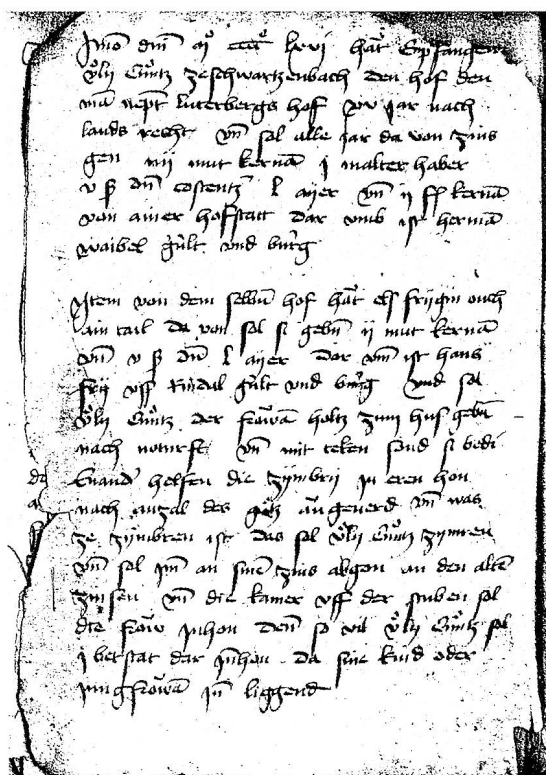 Anno dm̄ mº cccº lxxvi hat Enpfangen
Vͦlij Cuͦntz ze schwartzenbach den hof den
mā nept luterbergs hof xv jar nach
lands recht vn̄ sol alle jar da von zins
gen mut kernā j malter haber
v ß dn̄ costentz l aijer vn̄ ij kernā
von ainer hofstatt dar vmb ist hermā
waibel guͤlt vnd buͤrg
Item von dem selbn̄ hof hat els frijgin ouch
ain tail da von sol si gebn̄ ij mut kernā
vn̄ v ß dn̄ l aijer dar vm̄ ist hans
frij vff Rindal guͤlt vnd buͤrg vnd sol
Vͦlij Cuͦntz der froͮwā holtz zum hus gebn̄
nach noturft vn̄ mit sond si bedi
Enand' helfen die zijmbrij in eren hon
nach anzal des guͦtz ān geuerd vn̄ was
ze zijmbren ist das sol Vͦlij Cuͦntz zijmren
vn̄ sol im̄ an sinē zins abgon an den altē
zinsen vn̄ die kamer vff der stuben sol
die froͮw inhon den̄ so vil Vͦlij Cuͦntz sol
j betstat dar in̄hon da sine kind oder
jungfroͮwā in̄ liggend